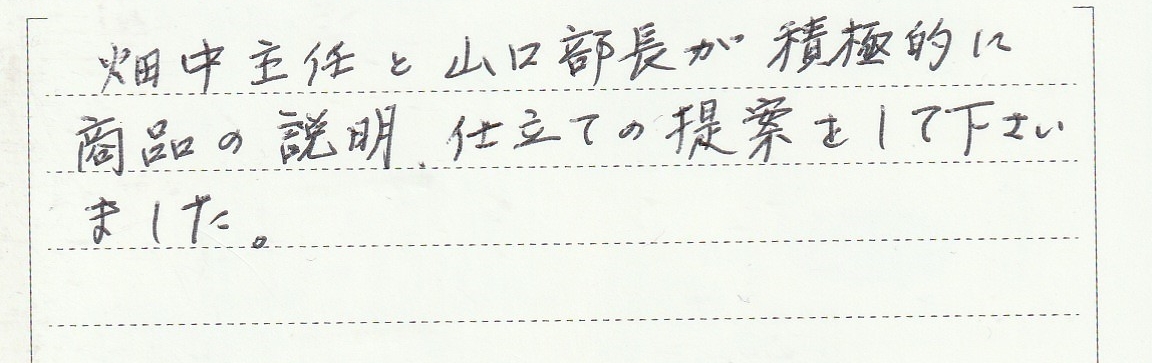 畑中主任と山口部長が積極的に
商品の説明、仕立ての提案をして下さい
ました。